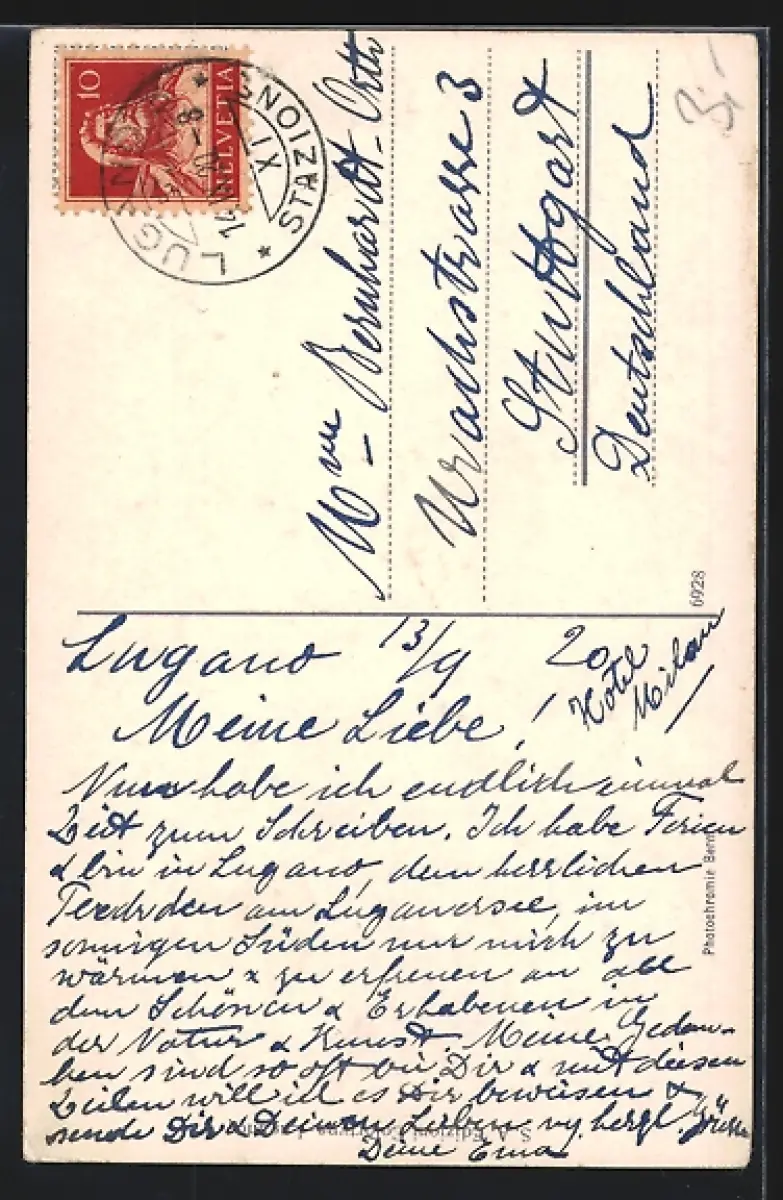 10
HELVETIA
LUGANO
STAZIONE
XI
Mme Bernhardt-Orth
Urachstrasse 3
Stuttgart
Deutschland
6928
Lugano 13/9 20
Hotel
Milan
Meine Liebe!
Nun habe ich endlich einmal
Zeit zum Schreiben. Ich habe Ferien
& bin in Lugano, dem herrlichen
am Luganersee, im
sonnigen Süden nur mich zu
wärmen & zu erfreuen an all
dem Schönen & Erhabenen in
der Natur & Kunst. Meine Gedan-
ken sind so oft bei Dir & mit diesen
Zeilen will ich es Dir beweisen &
sende Dir & Deinen Lieben herzl. Grüsse
Deine Erna
Photochromie Bern
S. A. Edizioni